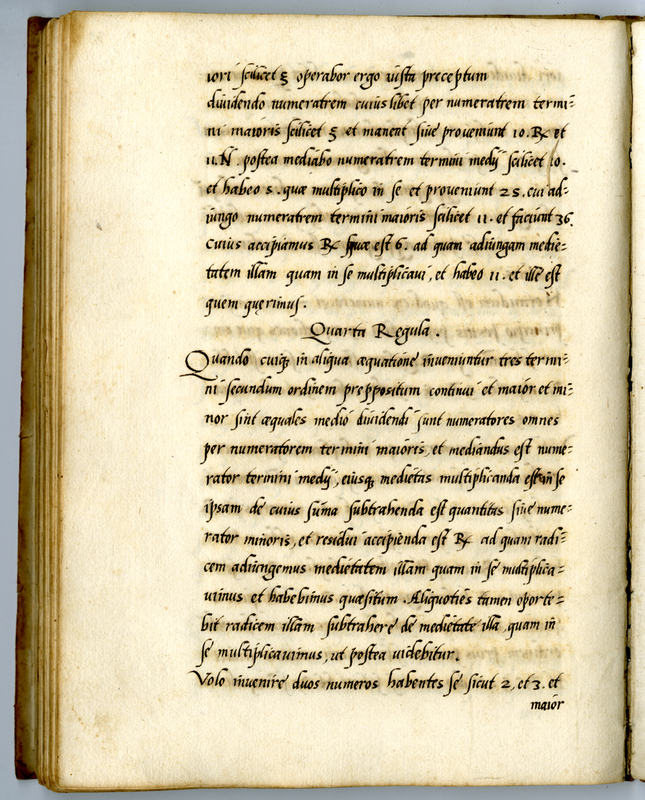 iori scilicet ξ operabor ergo iusta preceptum
diuidendo numeratrem cuius libet per numeratrem termi=
ni maioris scilicet ξ et manent siue proueniunt 10. ℞ et
11. N. postea mediabo numeratrem termini medij scilicet 10.
et habeo 5. quæ multiplico in se et proueniunt 25. cui ad=
iungo numeratrem termini maioris scilicet 11. et faciunt 36.
cuius accipiamus ℞ quæ est 6. ad quam adiungam medie=
tatem illam quam in se multiplicaui, et habeo 11. et ille est
quem quęrimus.
Quarta Regula.
Quando cuiq; in aliqua æquatione inueniuntur tres termi=
ni secundum ordinem prepositum continui et maior et mi=
nor sint æquales medio diuidendi sunt numeratores omnes
per numeratorem termini maioris, et mediandus est nume=
rator termini medij, eiusq; medietas multiplicanda est in se
ipsam de cuius suma subtrahenda est quantitas siue nume=
rator minoris, et residui accipienda est ℞ ad quam radi=
cem adiungemus medietatem illam quam in se multiplica=
uimus et habebimus quæsitum. Aliquoties tamen oporte=
bit radicem illam subtrahere de medietate illa, quam in
se multiplicauimus, ut postea uidebitur.
Volo inuenire duos numeros habentes se sicut 2, et 3. et
maior